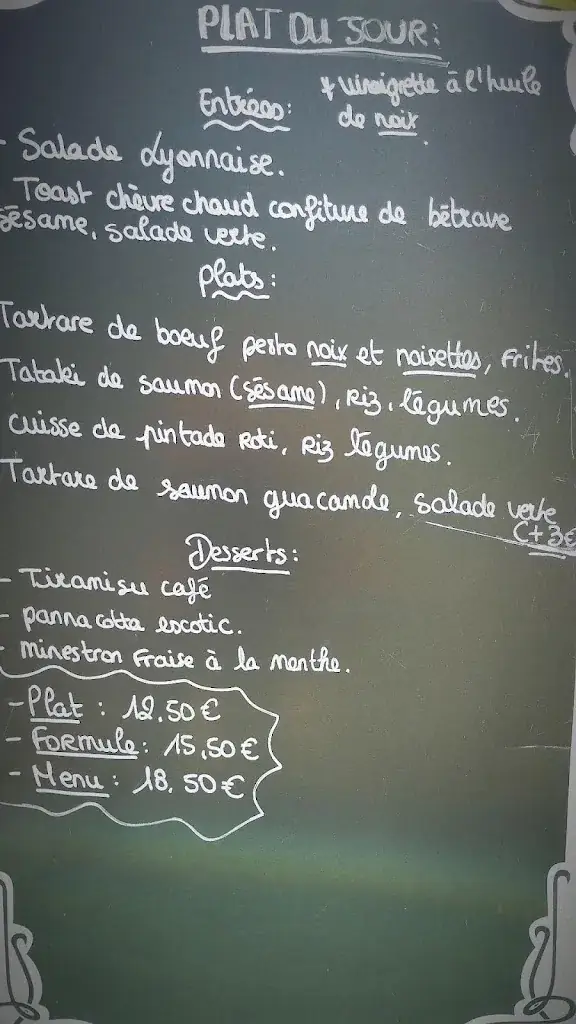 PLAT DU JOUR:
Entrées:
* vinaigrette à l'huile
de noix.
- Salade Lyonnaise.
Toast chèvre chaud confiture de bétrave
sésame, salade verte.
Plats:
Tartare de boeuf pesto noix et noisettes, frites.
Tataki de saumon (sésame), Riz, légumes.
cuisse de pintade Roti, Riz légumes.
Tartare de saumon guacamole, salade verte
(+3€
Desserts:
- Tiramisu café
- panna cotta exotic.
- minestron Fraise à la menthe.
- Plat : 12,50 €
- Formule : 15,50 €
- Menu : 18.50 €